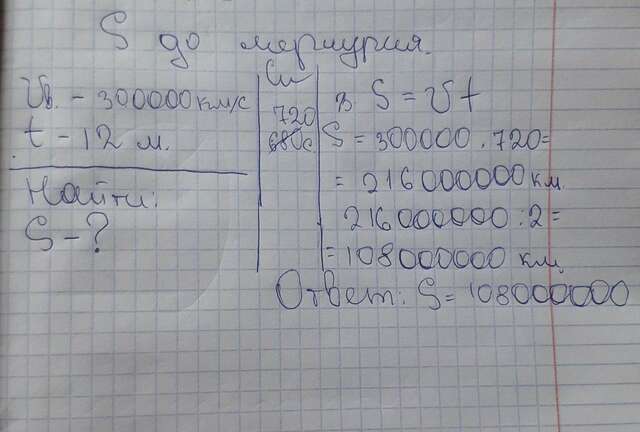 S до меркурия.
Vв. - 300000км/с
t - 12 м.
Найти:
S - ?
Си
720
680с
S = Vt
S = 300000 · 720=
= 216000000км.
216000000 : 2 =
= 108000000 км.
Ответ: S = 108000000